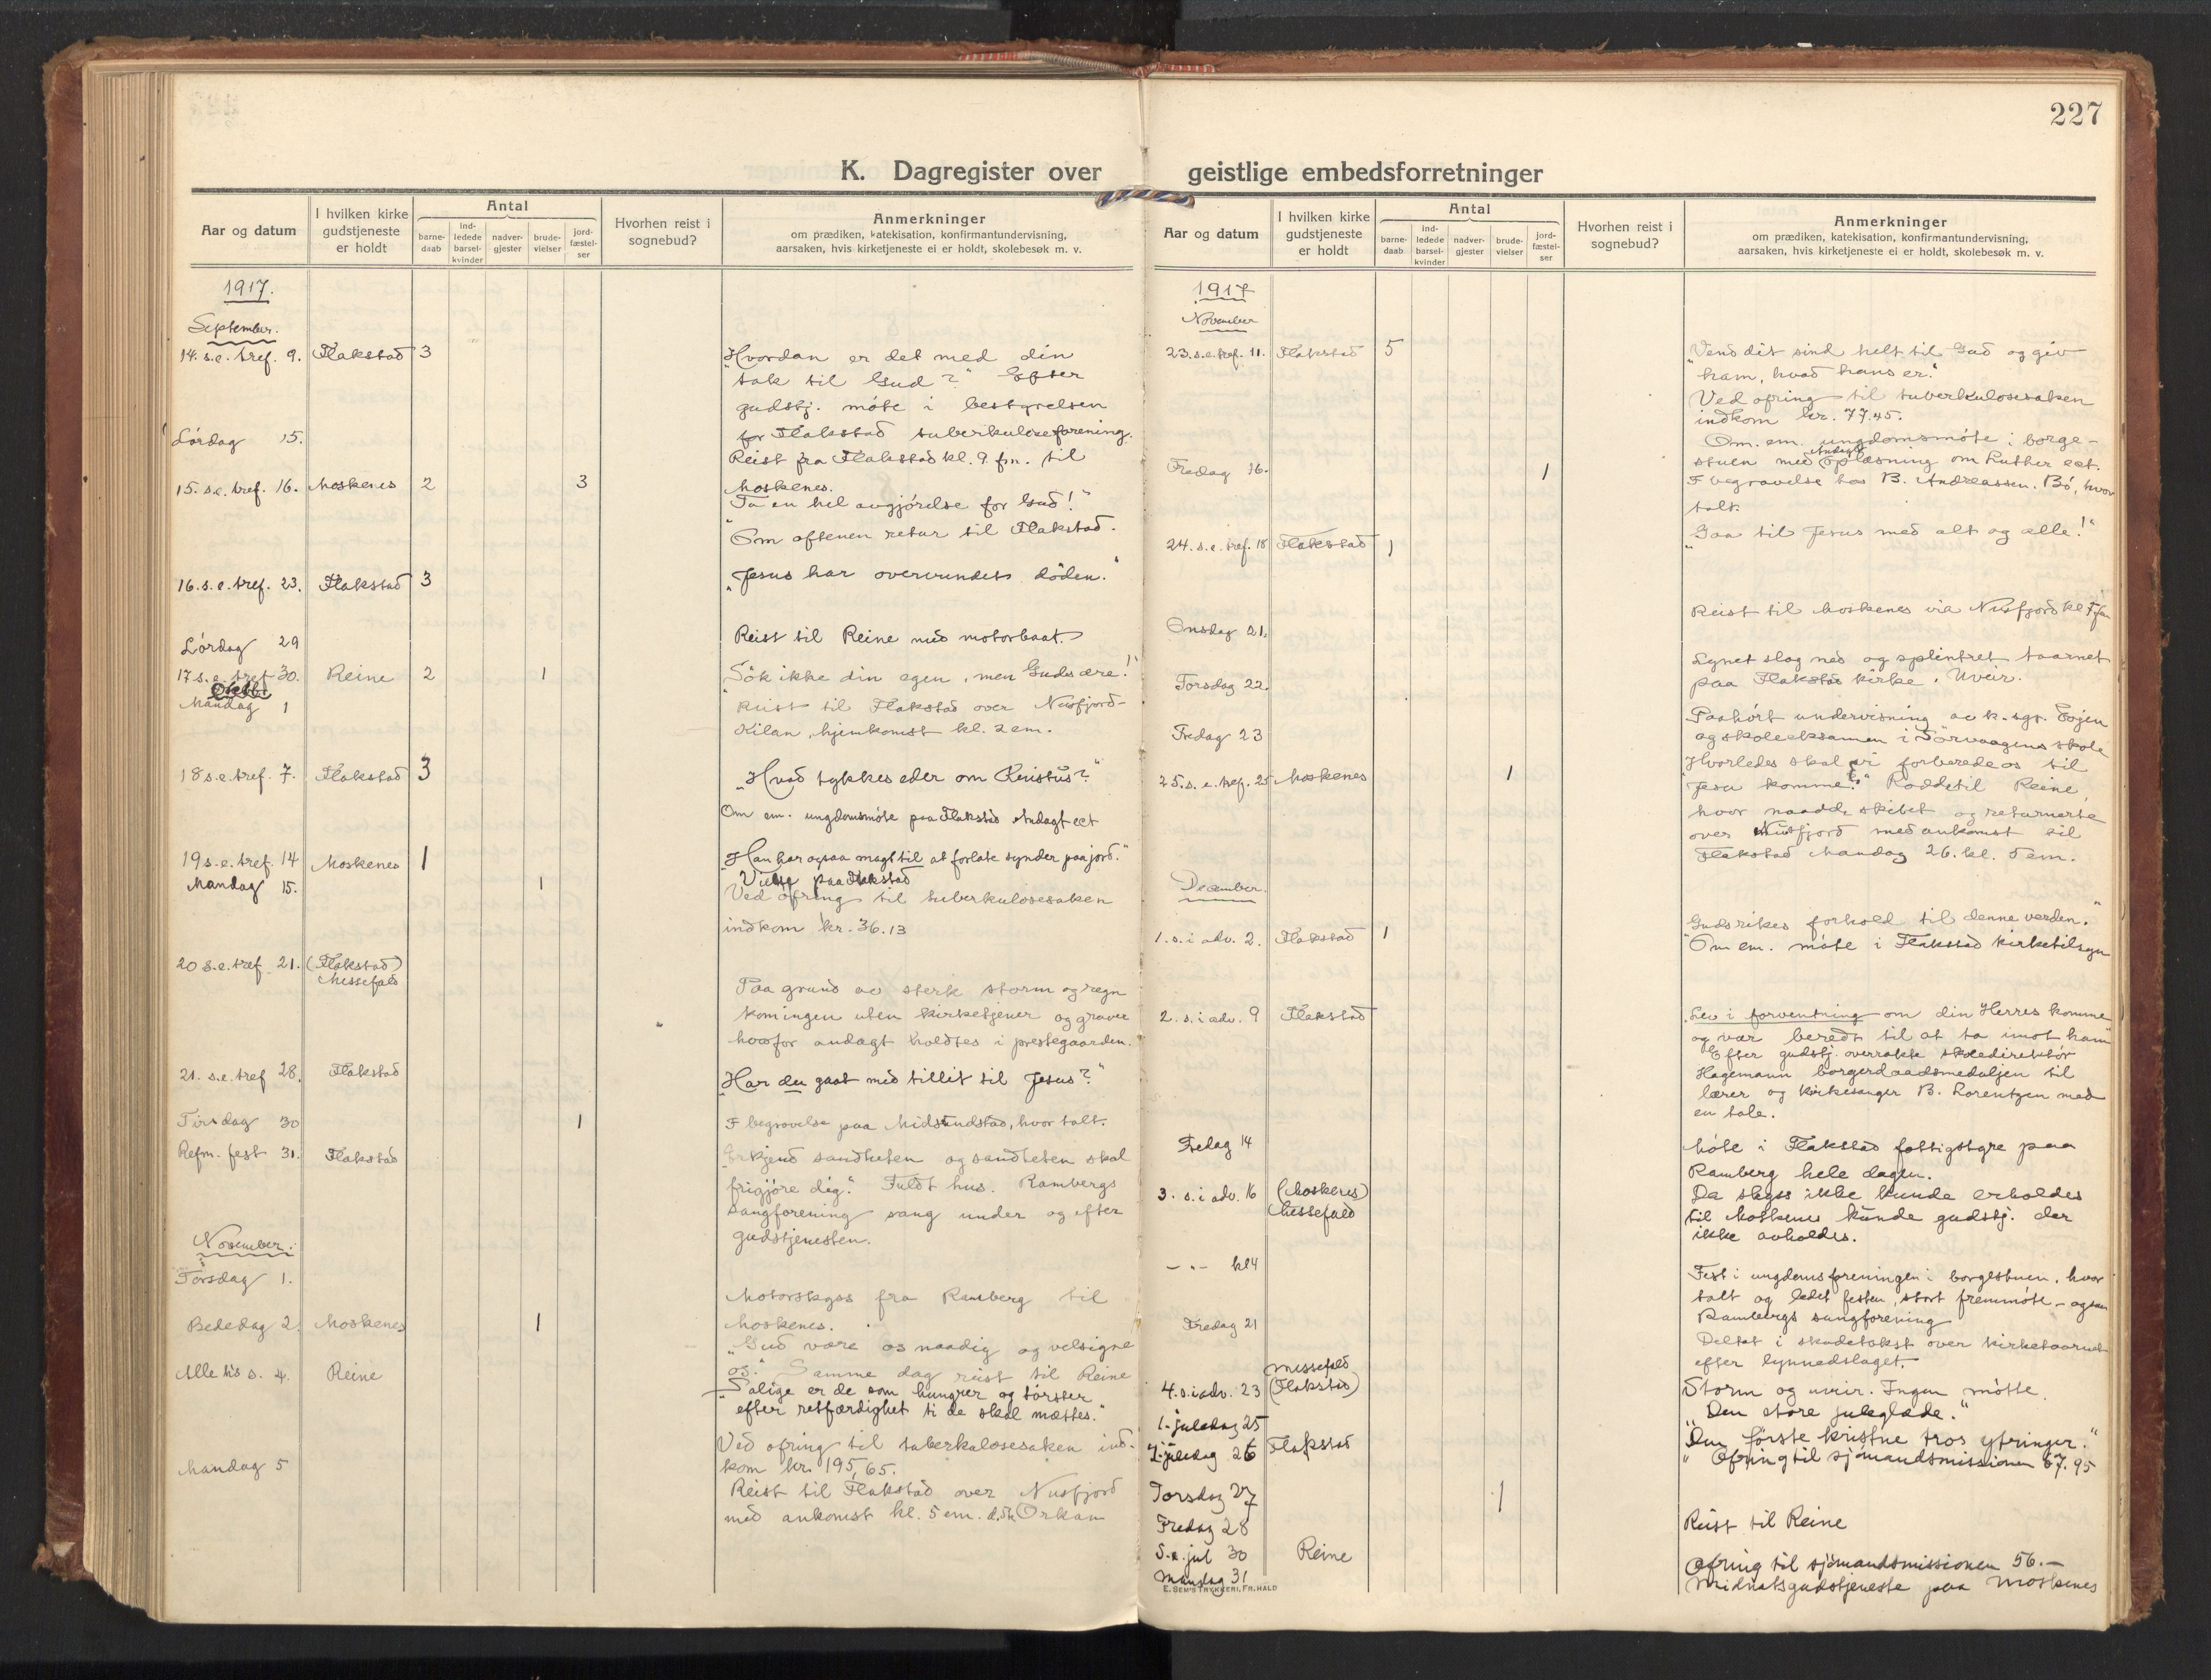 227
K. Dagregister over geistlige embedsforretninger
Aar og datum
I hvilken kirke gudstjeneste er holdt
Antal
barne-daab
ind-ledede barsel-kvinder
nadver-gjester
brude-vielser
jord-fæstel-ser
Hvorhen reist i sognebud?
Anmerkninger
om prædiken, katekisation, konfirmantundervisning,
aarsaken, hvis kirketjeneste ei er holdt, skolebesøk m. v.
1917.
September.
14. s.e. tref. 9. Flakstad 3 "Hvordan er det med din
tak til Gud?" Efter
gudstj. møte i bestyrelsen
for Flakstad tuberkuloseforening.
Lördag 15. Reist fra Flakstad kl. 9 fm. til
Moskenes.
15. s.e. tref. 16. Moskenes 2 3 "Ta en hel avgjörelse for Gud!"
Om aftenen retur til Flakstad.
16. s.e. tref. 23. Flakstad 3 "Jesus har overvundet döden."
Lördag 29 Reist til Reine med motorbaat.
17 s.e. tref 30. Reine 2 1 "Sök ikke din egen, men Guds ære!"
Oktbr.
Mandag 1 Reist til Flakstad over Nusfjord-
Kilan, hjemkomst kl. 2 em.
18 s.e. tref. 7. Flakstad 3 "Hvad tykkes eder om Kristus?"
Om em. ungdomsmöte paa Flakstad Andagt ect
19 s.e. tref. 14 Moskenes 1 "Han har ogsaa magt til at forlate synder paa jord."
Mandag 15. 1 Vielse paa Flakstad
Ved ofring til tuberkulosesaken
indkom kr. 36.13
20 s.e. tref. 21. (Flakstad)
Messefald
Paa grund av sterk storm og regn
kom ingen uten kirketjener og graver
hvorfor andagt holdtes i prestegaarden.
21. s.e. tref 28. Flakstad "Har du gaat med tillit til Jesus?"
Tirsdag 30 1 I begravelse paa Midsundstad, hvor talt.
Refm. fest 31. Flakstad "Erkjend sandheten og sandheten skal
frigjöre dig." Fuldt hus. Rambergs
sangforening sang under og efter
gudstjenesten.
November.
Torsdag 1. Motorskyss fra Ramberg til
Moskenes.
Bededag 2. Moskenes 1 "Gud være os naadig og velsigne
os." Samme dag reist til Reine
Alle h's s. 4. Reine "Salige er de som hungrer og törster
efter retfærdighet ti de skal mættes."
Ved ofring til tuberkulosesaken ind-
kom kr. 195,65.
Mandag 5 Reist til Flakstad over Nusfjord
med ankomst kl. 5 em. Orkan
Aar og datum
I hvilken kirke gudstjeneste er holdt
Antal
barne-daab
ind-ledede barsel-kvinder
nadver-gjester
brude-vielser
jord-fæstel-ser
Hvorhen reist i sognebud?
Anmerkninger
om prædiken, katekisation, konfirmantundervisning,
aarsaken, hvis kirketjeneste ei er holdt, skolebesøk m. v.
1917
November
23. s.e. tref. 11. Flakstad 5 "Vend dit sind helt til Gud og giv
ham, hvad hans er."
Ved ofring til tuberkulosesaken
indkom kr. 77.45.
Om em. ungdomsmöte i borge-
stuen med Andagt oplæsning om Luther ect.
Fredag 16. 1 I begravelse hos B. Andreassen, Bö, hvor
talt.
24. s.e. tref. 18 Flakstad 1 "Gaa til Jesus med alt og alle!"
Onsdag 21. Reist til Moskenes via Nusfjord kl 7 fm
Torsdag 22. Lynet slog ned og splintret taarnet
paa Flakstad kirke. Uveir.
Fredag 23 Paahört undervisning av k. sgr. Fojen
og skoleeksamen i Sörvaagens skole
25. s. e. tref. 25 Moskenes 1 "Hvorledes skal vi forberede os til
Jesu komme?" Rodde til Reine,
hvor naadde skibet og returnerte
over Nusfjord med ankomst til
Flakstad Mandag 26. kl. 5 em.
December.
1. s. i adv. 2. Flakstad 1 "Gudsrikes forhold til denne verden."
Om em. möte i Flakstad kirketilsyn
2. s. i adv. 9 Flakstad "Lev i forventning om din Herres komme
og vær beredt til at ta imot ham"
Efter gudstj. overrakte skoledirektör
Hagemann borgerdaadsmedaljen til
lærer og kirkesanger B. Lorentzen med
en tale.
Fredag 14 Möte i Flakstad fattigstyre paa
Ramberg hele dagen.
3. s. i adv. 16 (Moskenes)
Messefald
Da skyss ikke kunde erholdes
til Moskenes kunde gudstj. der
ikke avholdes.
— " — kl 4 Fest i ungdomsforeningen i borgestuen, hvor
talt og ledet festen, stort fremmöte - ogsaa
Rambergs sangforening
Fredag 21 Deltat i skadetakst over kirketaarnet
efter lynnedslaget.
4. s. i adv. 23 messefald
(Flakstad)
Storm og uveir. Ingen mötte.
1. juledag 25 "Den store juleglæde."
2. juledag 26 Flakstad "Den første kristne tros ytringer."
Ofring til sjömandsmissionen 67.95
Torsdag 27 1
Fredag 28 Reist til Reine
S. e. jul 30 Reine Ofring til sjömandsmissionen 56.—
Mandag 31 Midnatsgudstjeneste paa Moskenes
E. SEM'S TRYKKERI, FR.HALD